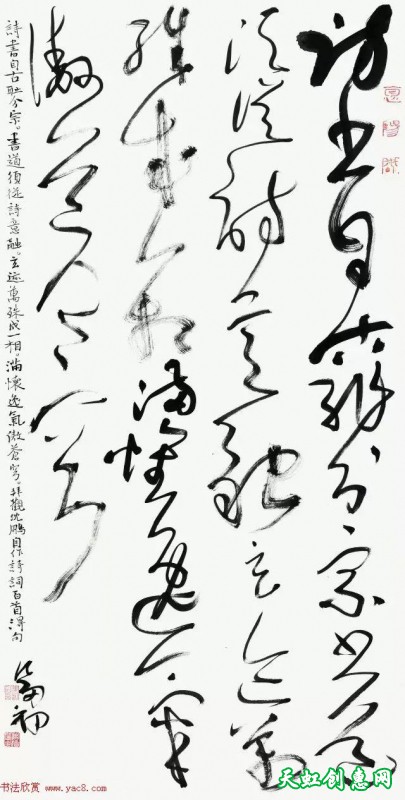 詩書自古耻分宗書道
須從詩意融玄迹萬
殊成一相滿懷逸氣
傲蒼穹
詩書自古耻分宗。書道須從詩意融。玄迹萬殊成一相。滿懷逸氣傲蒼穹。拜觀沈鵬自作詩詞百首得句
书法欣赏 www.yac8.com
天虹创意网